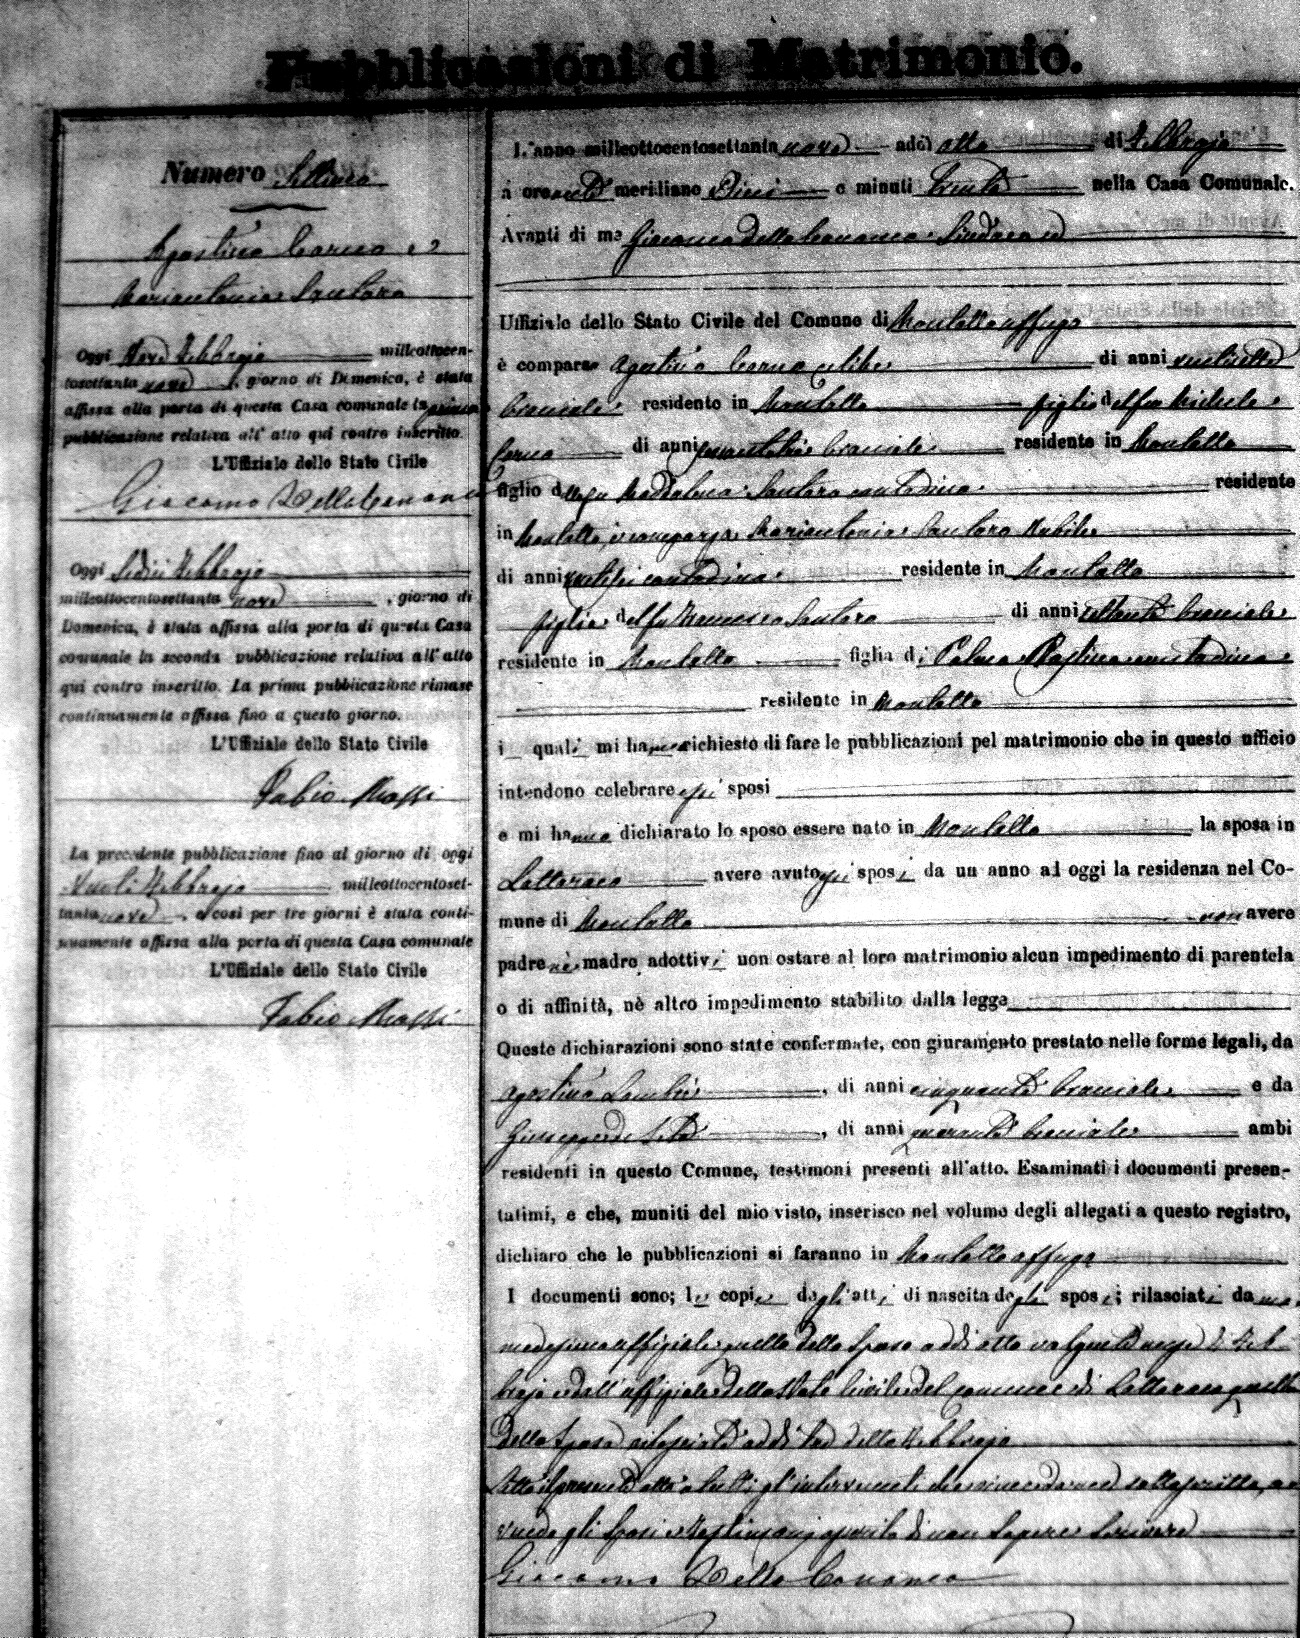 Pubblicazioni di Matrimonio.
Numero Settimo
Agostino Carno e
Mariantonia Santoro
Oggi Nove Febbrajo milleottocen-
tosettanta nove, giorno di Domenica, è stata
affissa alla porta di questa Casa comunale la prima
pubblicazione relativa all' atto qui contro inscritto.
L'Uffiziale dello Stato Civile
Giacomo Della Cananea
Oggi Sedici Febbrajo
milleottocentosettanta nove, giorno di
Domenica, è stata affissa alla porta di questa Casa
comunale la seconda pubblicazione relativa all' atto
qui contro inscritto. La prima pubblicazione rimase
continuamente affissa fino a questo giorno.
L'Uffiziale dello Stato Civile
Fabio Massi
La precedente pubblicazione fino al giorno di oggi
Venti Febbrajo milleottocentoset-
tanta nove, e così per tre giorni è stata conti-
nuamente affissa alla porta di questa Casa comunale
L'Uffiziale dello Stato Civile
Fabio Massi
L'anno milleottocentosettanta nove addì otto di Febbrajo
a ore anti meridiane Dieci e minuti trenta nella Casa Comunale.
Avanti di me Giacomo Della Cananea Sindaco ed
Uffiziale dello Stato Civile del Comune di Montalto uffugo
è comparso Agostino Carno celibe di anni ventisette
bracciale residente in Montalto figlio del fu Michele
Carno di anni bracciale residente in Montalto
figlio della fu Maddalena Santoro contadina residente
in Montalto, Mariantonia Santoro Nubile
di anni contadina residente in Montalto
figlia del fu Francesco Santoro di anni ottanta bracciale
residente in Montalto figlia di Palma contadina
residente in Montalto
i quali mi hanno richiesto di fare le pubblicazioni pel matrimonio che in questo ufficio
intendono celebrare essi sposi
e mi hanno dichiarato lo sposo essere nato in Montalto la sposa in
Lattaraco avere avuto essi sposi da un anno ad oggi la residenza nel Co-
mune di Montalto non avere
padre nè madre adottivi non ostare al loro matrimonio alcun impedimento di parentela
o di affinità, nè altro impedimento stabilito dalla legge
Queste dichiarazioni sono state confermate, con giuramento prestato nelle forme legali, da
Agostino, di anni cinquanta bracciale e da
Giuseppe de Seta, di anni quaranta bracciale ambi
residenti in questo Comune, testimoni presenti all'atto. Esaminati i documenti presen-
tatimi, e che, muniti del mio visto, inserisco nel volume degli allegati a questo registro,
dichiaro che le pubblicazioni si faranno in Montalto uffugo
I documenti sono; le copie degli atti di nascita degli sposi; rilasciati da me
medesimo uffiziale quella dello Sposo addì otto volgente mese di Feb
brajo e dall'uffiziale dello Stato Civile del comune di Lattaraco quella
della Sposa rilasciata addì tre detto Febbrajo
Letto il presente atto a tutti gl'intervenuti sottoscritto, a
vendo gli Sposi e Testimonj asserito di non sapere scrivere
Giacomo Della Cananea